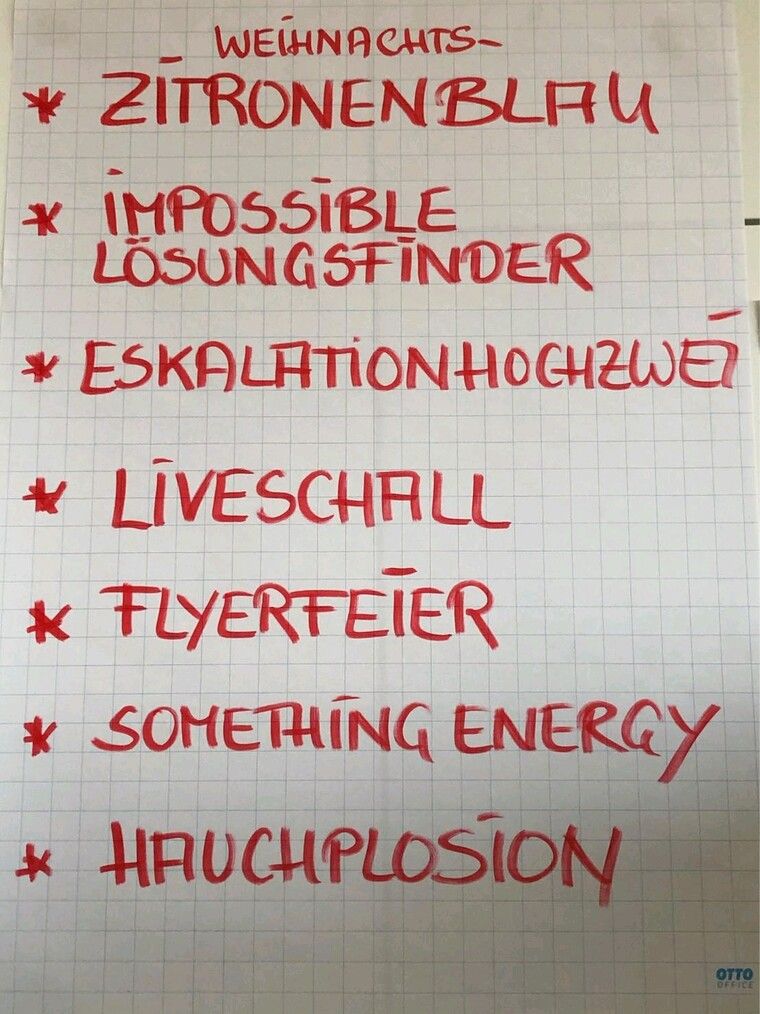 WEIHNACHTS-
* ZITRONENBLAU
* IMPOSSIBLE
LÖSUNGSFINDER
* ESKALATIONHOCHZWEI
* LIVESCHALL
* FLYERFEIER
* SOMETHING ENERGY
* HAUCHPLOSION
OTTO
OFFICE